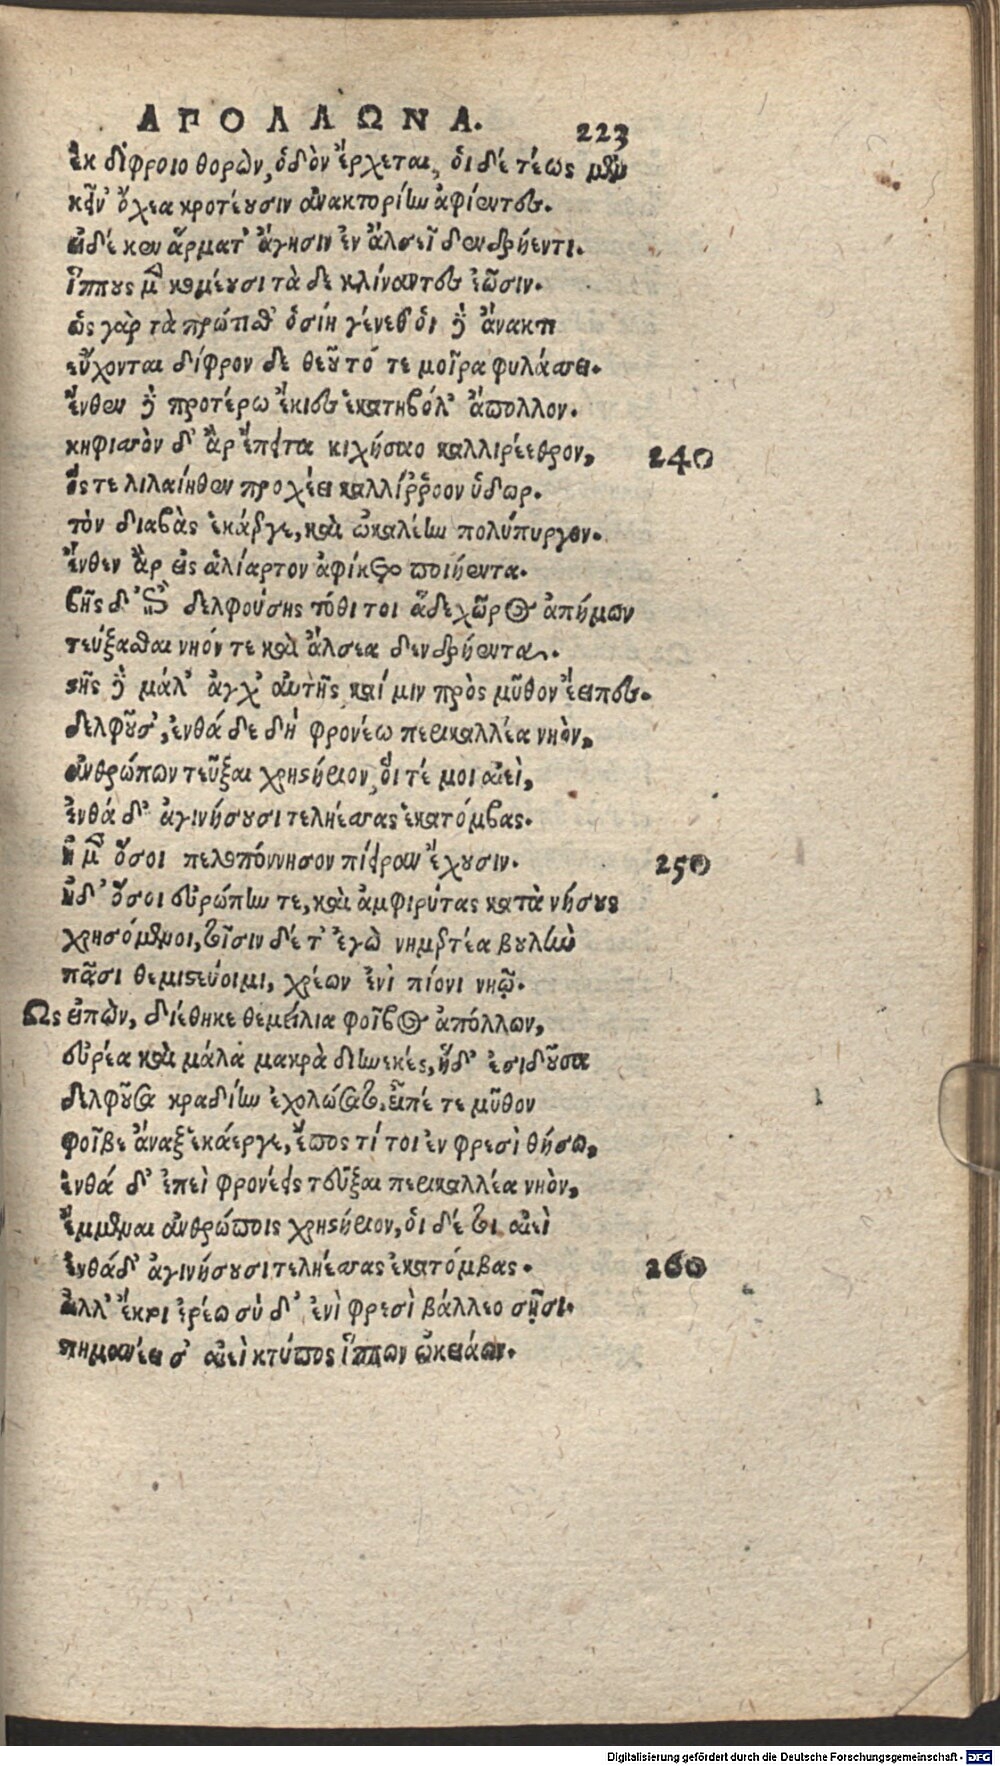 ΑΠΟΛΛΩΝΑ. 223
ἐκ δίφροιο θορὼν, ὁδὸν ἔρχεται, ὁι δέ τέως μὲν
κείν' ὄχεα κροτέουσιν ἀνακτορίην ἀφίεντες.
εἰ δέ κεν ἅρματ' ἄγησιν ἐν ἄλσεϊ δενδρήεντι.
ἵππους μὲν κομέουσι τὰ δε κλίναντες ἐῶσιν.
ὣς γαὸ τὰ πρώτισθ' ὁσίη γένεθ' ὁι δὲ ἄνακτι
εὔχονται δίφρον δε θεοῦ τό τε μοῖρα φυλάσσει.
ἔνθεν δὲ προτέρω ἔκιες ἑκατηβόλ' ἄπολλον.
κηφισσὸν δ' ἂρ ἔπειτα κιχήσαο καλλιρέεθρον, 240
ὅς τε λιλαίηθεν προχέει καλλίῤῥοον ὕδωρ.
τὸν διαβὰς ἑκάεργε, καὶ ὠκαλέην πολύπυργον.
ἔνθεν ἂρ εἰς ἁλίαρτον ἀφίκεο ποιήεντα.
βῆς δ' ἐπὶ δελφούσης τόθι τοι ἅδε χῶρος ἀπήμων
τεύξασθαι νηόν τε καὶ ἄλσεα δενδρήεντα.
στῆς δὲ μάλ' ἀγχ' αὐτῆς καί μιν πρὸς μῦθον ἔειπες.
δελφοῦσ', ἐνθά δε δὴ φρονέω περικαλλέα νηὸν,
ἀνθρώπων τεῦξαι χρηστήριον, ὅι τέ μοι αἰεὶ,
ἐνθά δ' ἀγινήσουσι τεληέσσας ἑκατόμβας.
ἠ μὲν ὅσοι πελοπόννησον πίειραν ἔχουσιν. 250
ἠδ' ὅσοι εὐρώπην τε, καὶ ἀμφιρύτας κατὰ νήσους
χρησόμενοι, τοῖσιν δέ τ' ἐγὼ νημερτέα βουλὴν
πᾶσι θεμιστεύοιμι, χρέων ἐνὶ πίονι νηῷ.
Ως εἰπὼν, διέθηκε θεμείλια φοῖβος ἀπόλλων,
εὐρέα καὶ μάλα μακρὰ διηνεκές, ἥδ' ἐσιδοῦσα
δελφοῦσα κραδίην ἐχολώσατο, εἶπέ τε μῦθον
φοῖβε ἄναξ ἑκάεργε, ἔπος τί τοι ἐν φρεσὶ θήσω,
ἐνθά δ' ἐπεὶ φρονέεις τεῦξαι περικαλλέα νηὸν,
ἔμμεναι ἀνθρώποις χρηστήριον, ὁι δέ τοι αἰεὶ
ἐνθάδ' ἀγινήσουσι τεληέσσας ἑκατόμβας. 260
ἀλλ' ἔκ τοι ἐρέω σὺ δ' ἐνὶ φρεσὶ βάλλεο σῇσι.
πημανέει σ' αἰεὶ κτύπος ἵππων ὠκειάων.
Digitalisierung gefördert durch die Deutsche Forschungsgemeinschaft - DFG